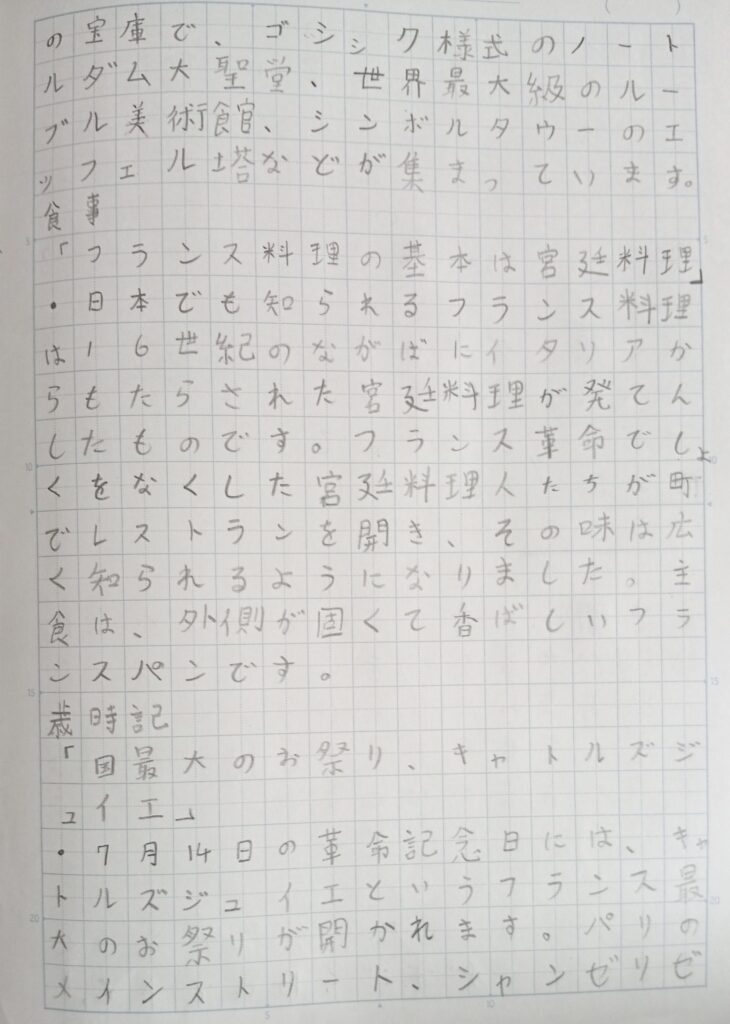 の宝庫で、ゴシック様式のノート
ルダム大聖堂、世界最大級のルー
ブル美術館、シンボルタワーのエ
ッフェル塔などが集まっています。
食事
「フランス料理の基本は宮廷料理」
・日本でも知られるフランス料理
は16世紀のながばにイタリアか
らもたらされた宮廷料理が発てん
したものです。フランス革命でしょ
くをなくした宮廷料理人たちが町
でレストランを開き、その味は広
く知られるようになりました。主
食は、外側が固くて香ばしいフラ
ンスパンです。
歳時記
「国最大のお祭り、キャトルズジ
ュイエ」
・7月14日の革命記念日には、キャ
トルズジュイエというフランス最
大のお祭りが開かれます。パリの
メインストリート、シャンゼリゼ